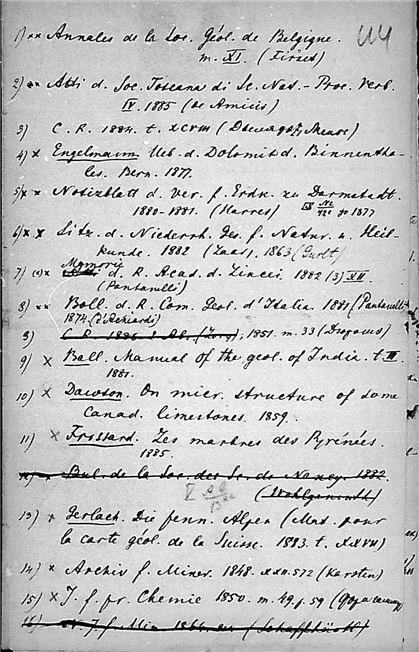 1) ×× Annales de la Soc. Géol. de Belgique.
т. XI. (Firket)
2) ×× Atti d. Soc. Toscana di Sc. Nat. - Proc. Verb.
IV. 1885 (de Amicis)
3) C. R. 1884. t. XCVIII (
4) × Engelmann Ueb. d. Dolomit d. Binnentha-
les. Bern. 1877.
5) × × Notizblatt d. Ver. f. Erdk. zu Darmstadt.
1880-1881. (Harres)
6) × × Sitz. d. Niederrh. Ges. f. Natur. u. Heil-
kunde. 1882 (Laar), 1863 (Gurlt)
7) (×)× Memorie d. R. Acad. d. Lincei 1882 (3) XII
(Pantanelli)
8) ×× Boll. d. R. Com. Geol. d'Italia. 1881 (Pantanelli)
1874 (D'Achiardi)
9) 1851. т. 33
9) × Ball. Manual of the geol. of India. t. III.
1881.
10) × Dawson. On micr. structure of some
Canad. limestones. 1859.
11) × Frossard. Les marbres des Pyrénées.
1885.
Bul. de la Soc. des Sc. de Nancy. 1882.
(Wohlgemuth)
13) × Gerlach. Die penn. Alpen (Mat. pour
la carte géol. de la Suisse. 1883. t. XXVII)
14) × Archiv f. Miner. 1848. XXII. 572 (Karsten)
15) × J. f. pr. Chemie 1850. т. 49. p. 59
16) N. J. f. Min. (Schafhäutl)